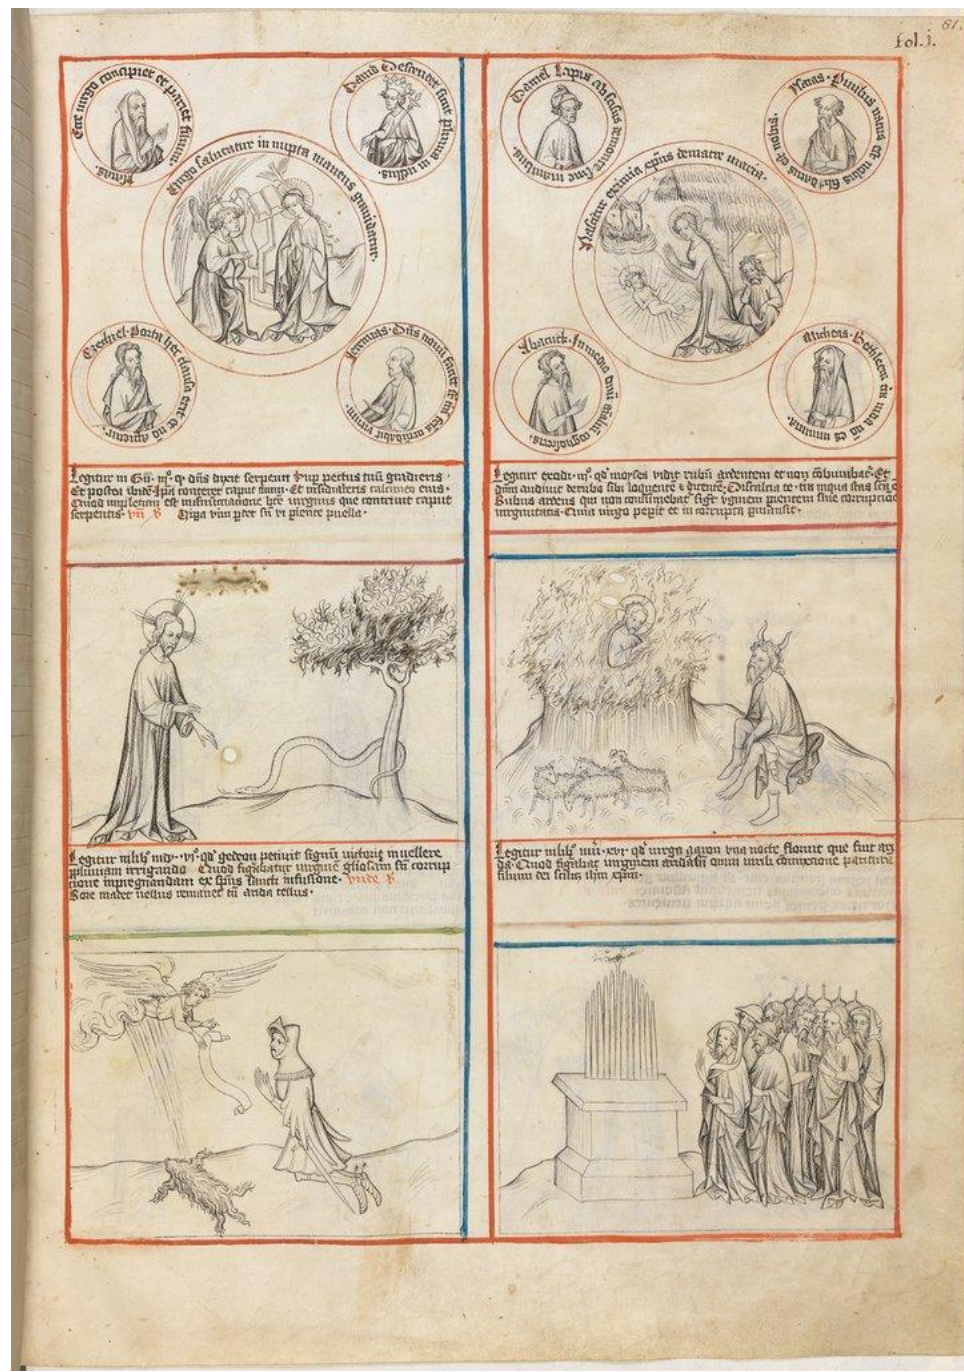 81.
fol. i.
Ecce virgo concipiet et pariet filium. Ysaias.
David Descendet sicut pluvia in vellus.
Virgo salutatur in nupta manens gravidatur.
Ezechiel. Porta hec clausa erit et nō aperietur.
Jeremias. Dn̄s novū faciet
Legitur in Gen̄. iijº. qº dn̄s dixit serpenti Sup pectus tuū gradieris.
Et postea ibidē. Ipsa conteret caput tuum. Et insidiaberis calcaneo eius.
Quod impletum est in annuntiatione bte virginis que contrivit caput
serpentis. vn̄ Viga vim pdet sn̄ vi piente puella.
Legitur in libº iudy. viº. qd gedeon petiuit signū victorie in vellere
pluuiam irrigando Quod figurabatur virginē gliosam sn̄ corrup
cione inpregnandam ex spūs sancti infusione. vnde
Rore madet vellus remanet tn̄ arida tellus.
Daniel Lapis abscisus de monte sine manibus.
Ysaias. Puulus natus est nobis et fili9 datus est nobis.
Nascitur eximia xpūs de matre maria.
Abacuck. In medio duū aīaliū cognosceris.
Micheas. Bethleem tu
Legitur exodi. iijº. qd moyses vidit rubū ardentem et non cōburebat. Et
dūm audivit de rubo sibi loquente
Rubus ardens qui non consumebat sigt virginem parientem sine corrupcione
virginitatis. Quia virgo peperit et in corrupta pmansit.
Legitur in libº nūi. xvij. qd virga Aaron vna nocte floruit que fuit ari
da. Quod figurabat virginem aridā sn̄ omni virili comixcione parituram
filium dei scilicet ihm xpm.